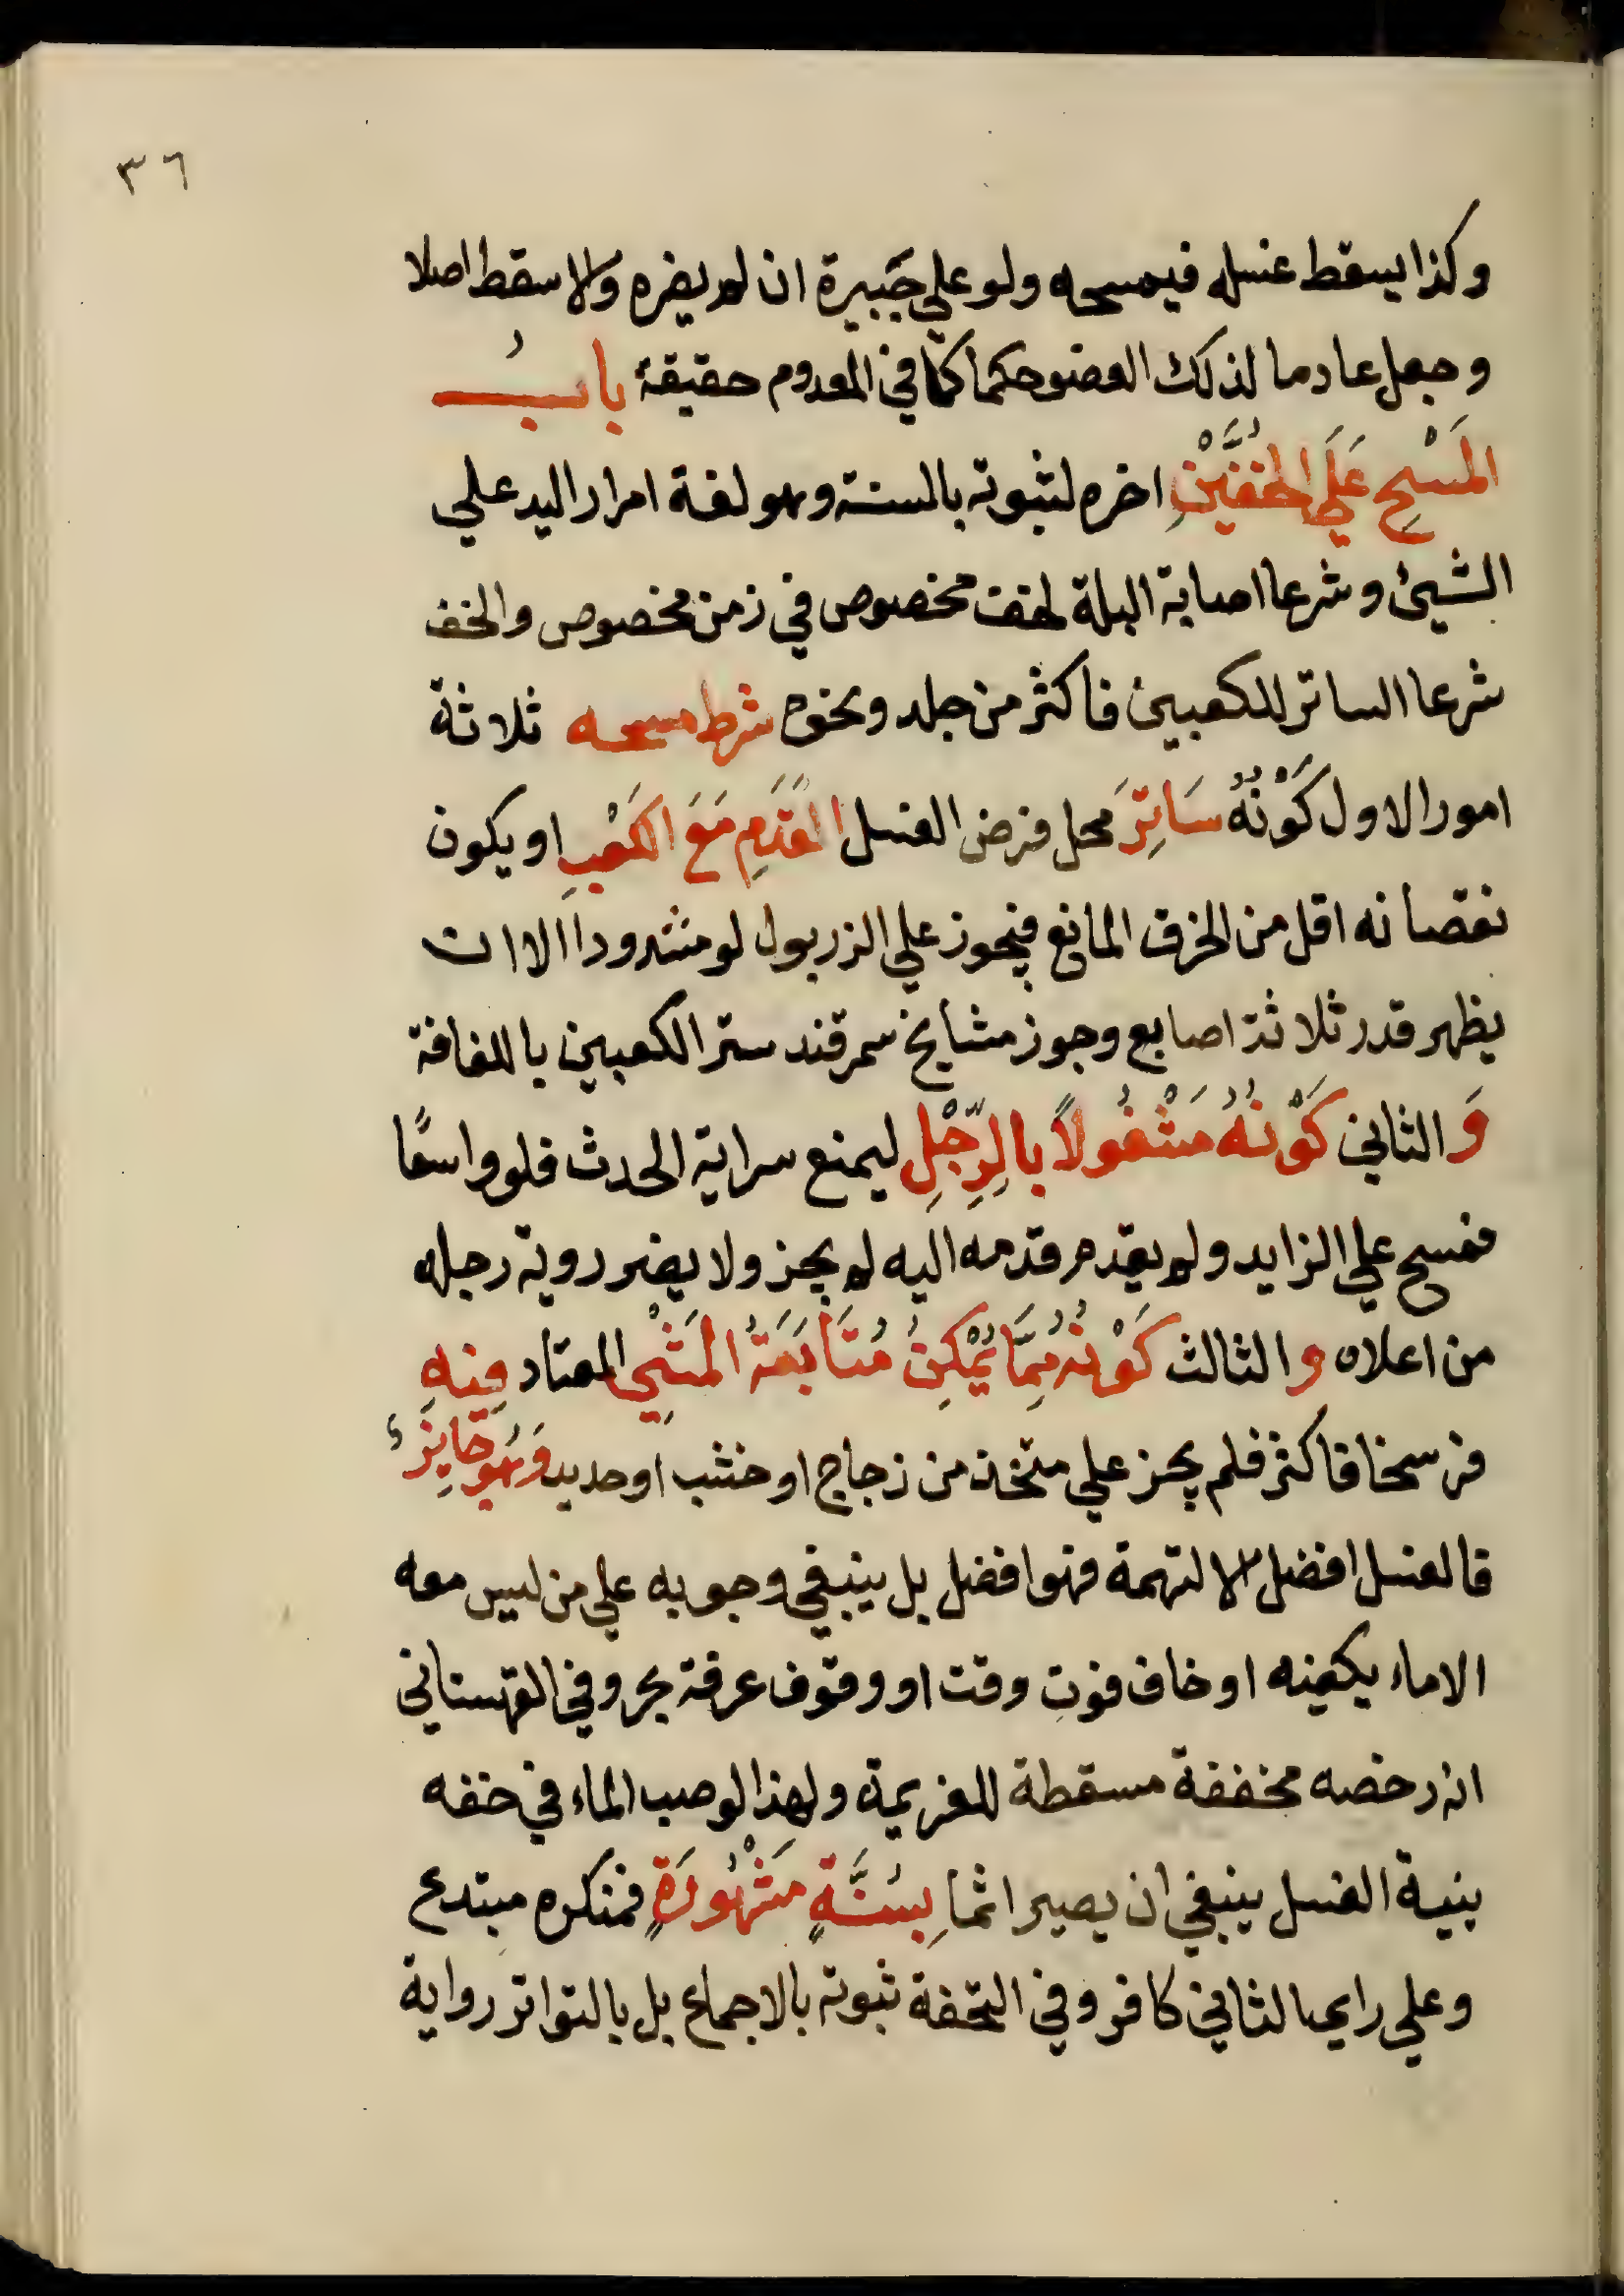 ٣٦
وكذا يسقط غسله فيمسحه ولو علي جَبيرة ان لم يضره والا سقط اصلا
وجعل عادما لذلك العضو حكما كما في المعدوم حقيقة بابُ
المَسْحِ عَلَي الخُفَّيْنِ اخره لثبوته بالسنة وهو لغة امرار اليد علي
الشيئ وشرعا اصابة البلة لخف مخصوص في زمن مخصوص والخف
شرعا الساتر للكعبين فاكثر من جلد ونحوه شرط مسحه ثلاثة
امور الاول كَوْنُهُ سَاتِرَ محل فرض الغسل القَدَمِ مَعَ الكَعْبِ او يكون
نقصانه اقل من الخرق المانع فيجوز علي الزربول لو مشدودا الا ان
يظهر قدر ثلاثة اصابع وجوز مشايخ سمرقند ستر الكعبين باللفافة
وَ الثاني كَوْنُهُ مَشْغُولًا بالرِّجْلِ ليمنع سراية الحدث فلو واسعًا
فمسح علي الزايد ولم يقدم قدمه اليه لم يجز ولا يضر روية رجله
من اعلاه و الثالث كَوْنُهُ مِمَّا يُمْكِنُ مُتَابَعَةُ المَشْيِ المعتاد فِيهِ
فرسخا فاكثر فلم يجز علي متخذ من زجاج او خشب او حديد وَهُوَ جَايِزٌ
فالغسل افضل الا لتهمة فهو افضل بل ينبغي وجوبه علي من ليس معه
الا ماء يكفيه او خاف فوت وقت او وقوف عرفة بحر وفي القهستاني
انه رخصه مخففة مسقطة للعزيمة ولهذا لو صب الماء في خفه
بنية الغسل ينبغي ان يصير اثما بِسُنَّةٍ مَشْهُورَةٍ فمنكره مبتدع
وعلي راي الثاني كافر وفي التحفة ثبوته بالاجماع بل بالتواتر رواية